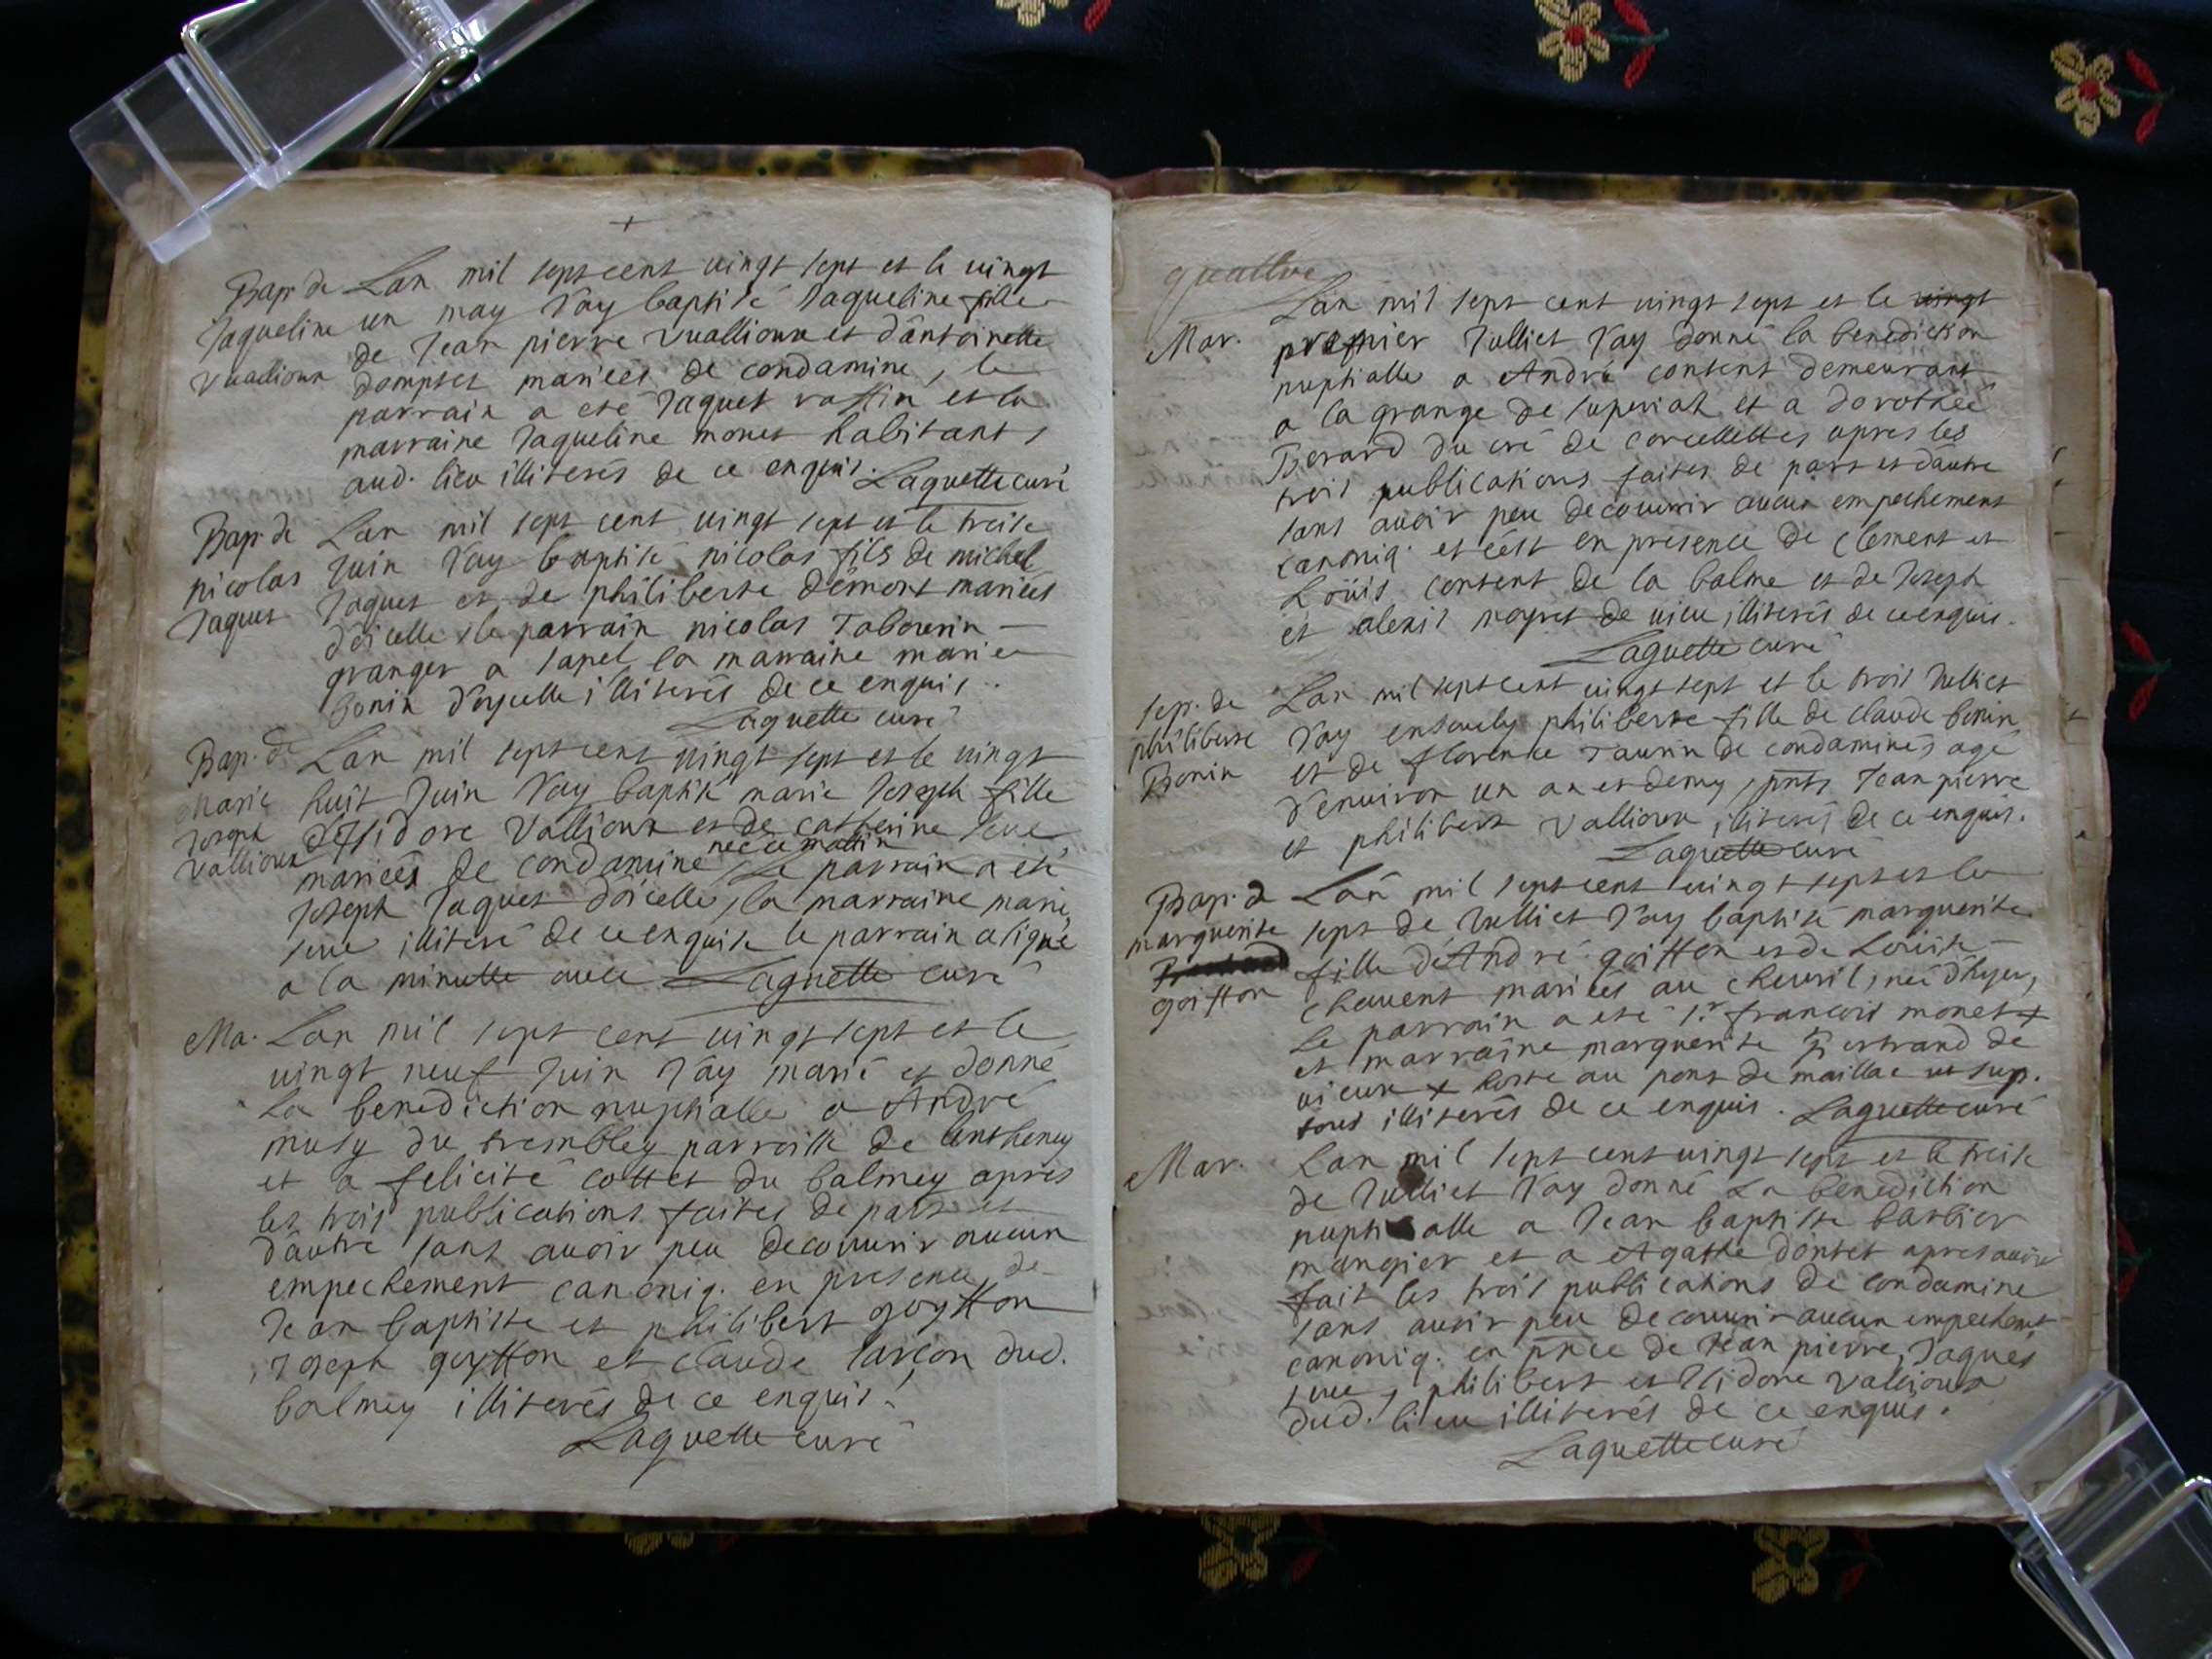 +
Bap. de Lan mil sept cent vingt sept et le vingt
Jaqueline un may J'ay baptisé Jaqueline fille
Vuallioux de Jean pierre Vuallioux et d'antoinette
dompset mariées de condamine, le
parrain a eté Jaques et la
marraine Jaqueline monet habitants
aud. lieu illiterés de ce enquis. Laguette curé
Bap. de Lan mil sept cent vingt sept et le treise
nicolas Juin J'ay baptisé nicolas fils de michel
Jaques Jaques et de philiberte démont mariées
d'icelle le parrain nicolas Tabourin
granger a la marraine marie
bonin d'ycelle illiterés de ce enquis.
Laguette curé
Bap. de Lan mil sept cent vingt sept et le vingt
Marie huit Juin J'ay baptisé marie Joseph fille
Joseph d'Isidore Vallioux et de catherine seve
née ce matin
Vallioux mariées de condamine, Le parrain a eté
Joseph Jaques d'icelle, la marraine marie
seve illiteré de ce enquise le parrain a signé
a la minutte avec Laguette curé
Ma. Lan mil sept cent vingt sept et le
vingt neuf Juin J'ay marié et donné
La benediction nuptialle a André
musy du trembley parroisse de Lentheney
et a felicité cottet du balmey apres
les trois publications faites de part et
d'autre sans avoir peu decouvrir aucun
empechement canoniq. en presence de
Jean baptiste et philibert goytton
Joseph goytton et claude larçon dud.
balmey illiterés de ce enquis.
Laguette curé
quattre
Lan mil sept cent vingt sept et le vingt
Mar. premier Julliet J'ay donné la benediction
nuptialle a André content demeurant
a la grange de et a dorothée
Berard du cré de corcellettes apres les
trois publications faites de part et d'autre
sans avoir peu decouvrir aucun empechement
canoniq. et c'est en presence de clement et
Loüis content de la balme et de Joseph
et alexis moyret de vieu illiterés de ce enquis.
Laguette curé
sep. de Lan mil sept cent vingt sept et le trois Julliet
philiberte J'ay ensevely philiberte fille de claude bonin
Bonin et de florence Taurin de condamines agé
d'environ un an et demy, pnts Jean pierre
et philibert Vallioux illiterés de ce enquis.
Laguette curé
Bap. d Lan mil sept cent vingt sept et le
marguerite sept de Julliet J'ay baptisé marguerite
fille d'André goitton et de Loüise
goitton chavent mariées au chevril, née d'hyer,
Le parrain a eté Sr. françois monet +
et marraine marguerite Bertrand de
vieux + hoste au pont de maillac ut sup.
tous illiterés de ce enquis. Laguette curé
Mar. Lan mil sept cent vingt sept et le treise
de Julliet J'ay donné La benediction
nuptialle a Jean baptiste barbier
mangier et a Agathe dontet apres avoir
fait les trois publications de condamine
sans avoir peu decouvrir aucun empechemt
canoniq. en pnce de Jean pierre, Jaques
seve, philibert et Isidore Vallioux
dud. lieu illiterés de ce enquis.
Laguette curé